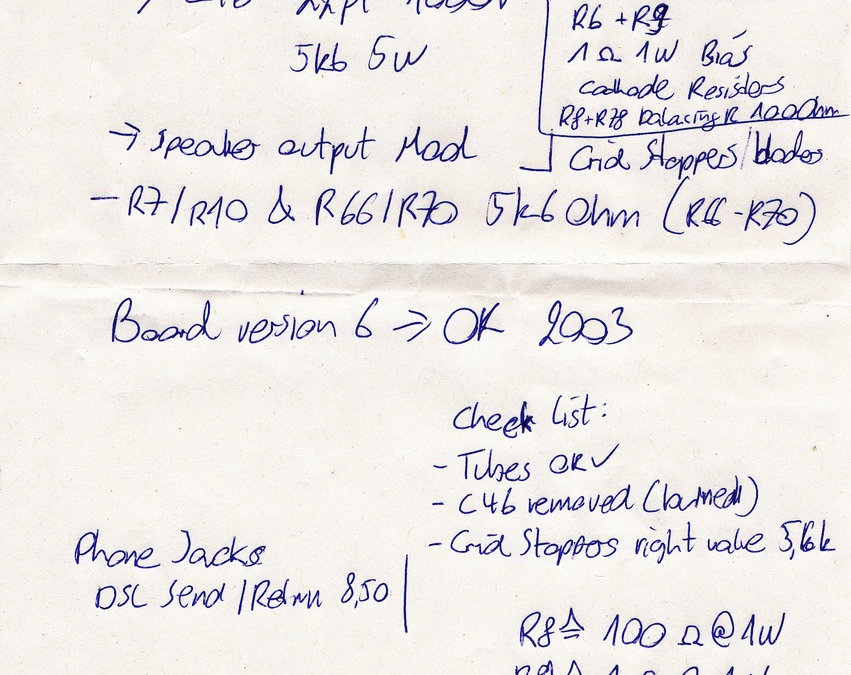 22pf 1000V
5k6 5W
R6 + R9
1Ω 1W Bias
Cathode Resistors
R8+R78 balacing R 100Ohm
Grid Stoppers/
→ Speaker output Mod
- R7/R10 & R66/R70 5k6 Ohm (R66-R70)
Board version 6 => OK 2003
Check list:
- Tubes OK✓
- C46 removed (burned)
- Grid Stoppers right value 5,6k
Phone Jacks
DSL Send/Return 8,50
R8 ≙ 100 Ω @ 1W